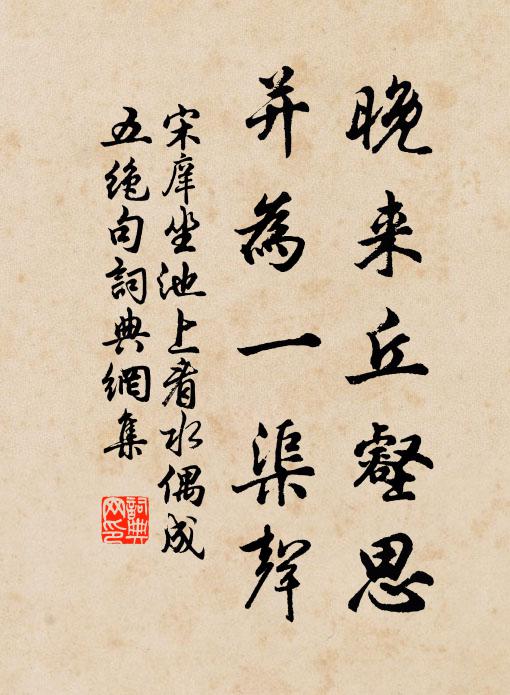 晚来丘壑思
并為一渠聲
宋庠坐池上看水偶成
五绝句詞典網集
詞典網印